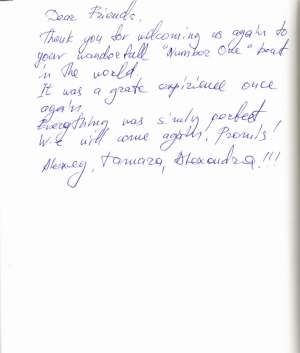 Dear Friends,
Thank you for welcoming us again to
your wonderfull "Number One" boat
in the world.
It was a grate expirience once
again.
Everything was simly perfect!
We will come again. Promis!
Alexey, Tamara, Alexandra!!!